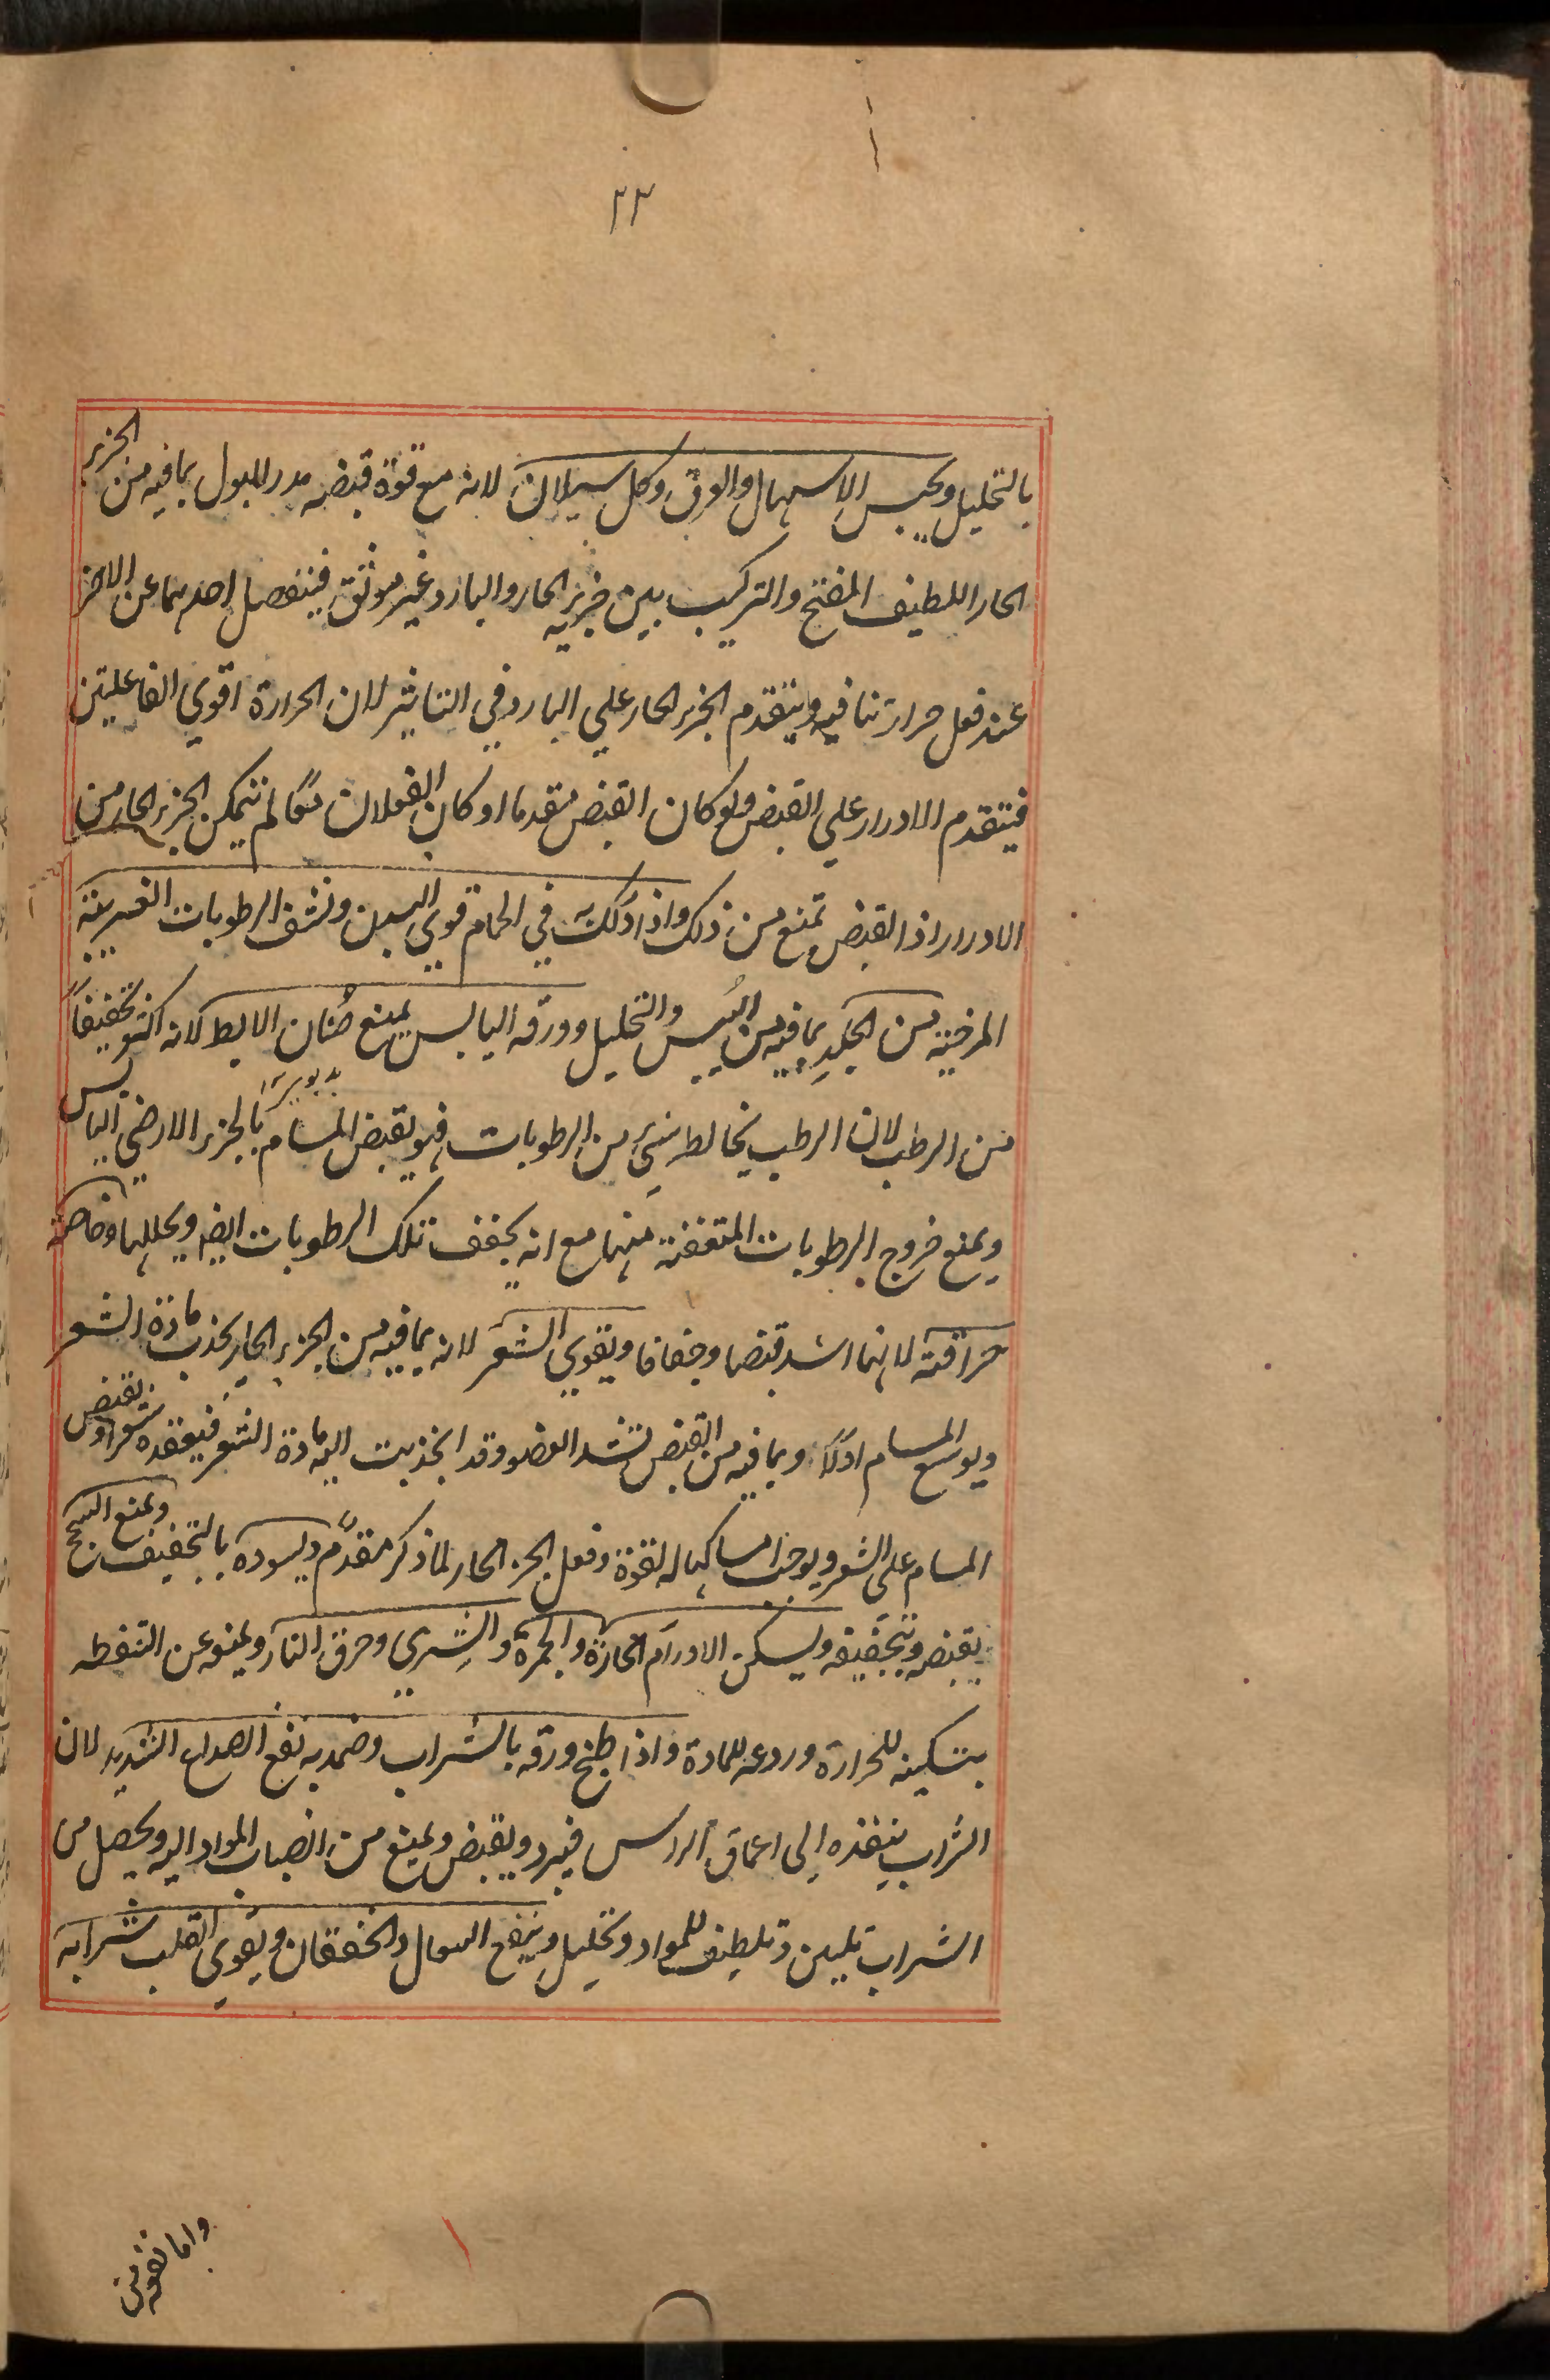 ٢٣
بالتحليل ويحبس الاسهال والعرق وكل سيلان لانه مع قوة قبضه مدر للبول بما فيه من الجزء
الحار اللطيف المفتح والتركيب بين جزيه الحار والبارد غير موثق فينفصل احدهما عن الاخر
عند فعل حرارتنا فيه ويتقدم الجزء الحار علي البارد في التاثير لان الحرارة اقوي الفاعليتن
فيتقدم الادرار علي القبض ولو كان القبض متقدما او كان الفعلان معًا لم يتمكن الجزء الحار من
الادرار اذ القبض تمنع من ذلك واذا دلك به في الحمام قوي البدن ونشف الرطوبات الغريبة
المرخية من الجلد بما فيه من اليُبس والتحليل وورقه اليابس يمنع صُنان الابط لانه اكثر تجفيفًا
من الرطب لان الرطب يخالطه شيء من الرطوبات فهو يقبض المسام بالجزء الارضي اليابس
ويمنع خروج الرطوبات المتعفنة منها مع انه يجفف تلك الرطوبات ايضا ويحللها وخاصة
حراقته لانها اشد قبضا وجفافا ويقوي الشعر لانه بما فيه من الجزء الحار يجذب مادة الشعر
ويوسع المسام اولًا وبما فيه من القبض تشد العضو وقد انجذبت اليه مادة الشعر فيعقده شعرا ويقبض
المسام علي الشعر ويوجب امساكها له لقوة وفعل الجزء الحار لما ذكر مقدّم ويسوده بالتجفيف ويمنع السحج
بقبضه وتجفيفه ويسكن الاورام الحارة والحمرة والشري وحرق النار ويمنعه عن التنفط
بتسكينه للحرارة وردعه للمادة واذا طبخ ورقه بالشراب وضمد به نفع الصداع الشديد لان
الشراب ينفذه الي اعماق الراس فيبرد ويقبض ويمنع من انصباب المواد اليه ويحصل من
الشراب تليين وتلطيف للمواد وتحليل وينفع السعال والخفقان ويقوي القلب شرابه
واما نفعه من